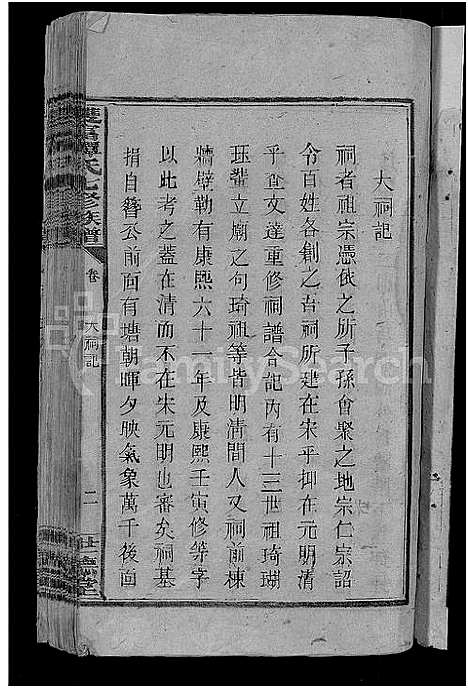 大祠記
祠者祖宗憑依之所子孫會聚之地宗仁宗詔
令百姓各創之吾祠所建在宋乎抑在元明清
乎查文達重修祠譜合記內有十三世祖琦瑚
珏輩立廟之句琦祖等皆明清間人又祠前棟
墻壁勒有康熙六十一年及康熙壬寅修等字
以此考之蓋在清而不在宋元明也審矣祠基
捐自簪公前面有塘朝暉夕映氣象萬千後面
譚氏七修族譜
卷
大祠記
二
FamilySearch